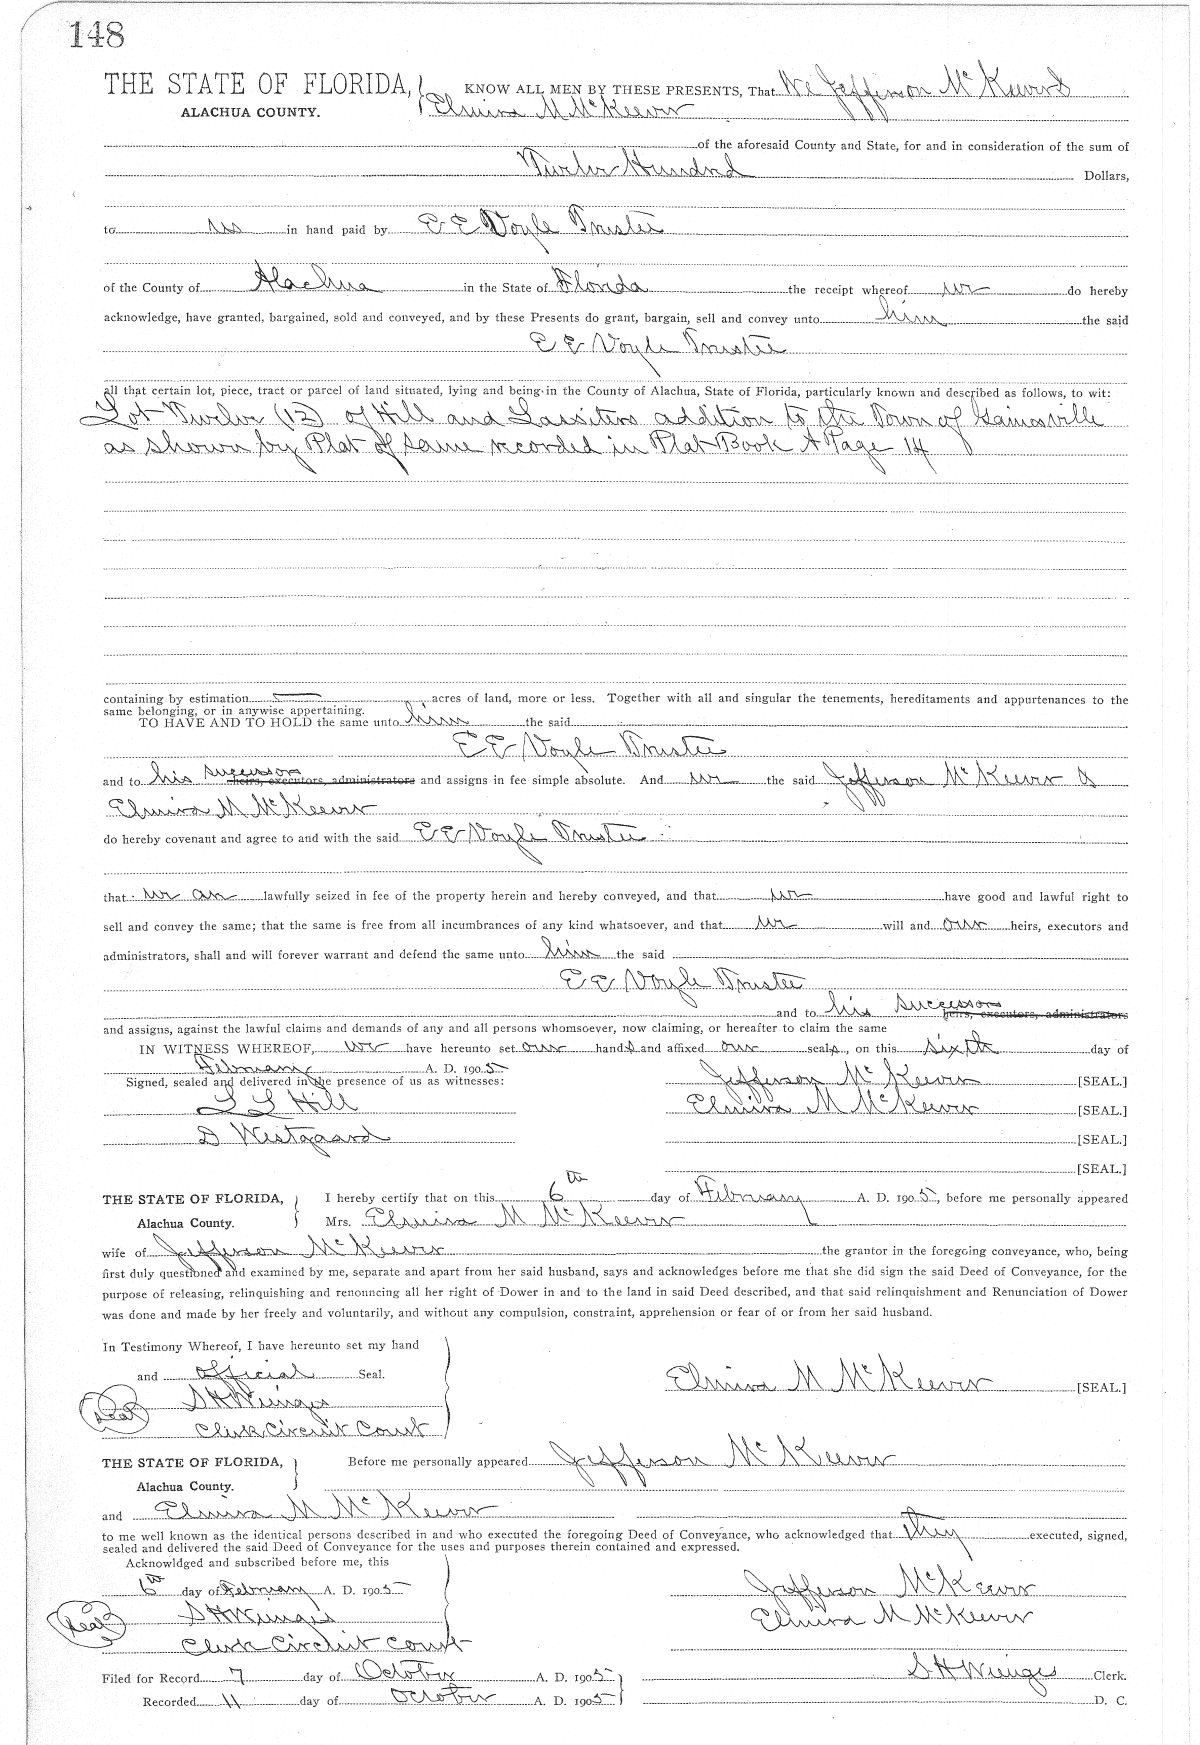 148
THE STATE OF FLORIDA, KNOW ALL MEN BY THESE PRESENTS, That We Jefferson McKeever &
ALACHUA COUNTY. Elmira M McKeever
of the aforesaid County and State, for and in consideration of the sum of
Twelve Hundred Dollars,
to us in hand paid by E E Voyle Trustee
of the County of Alachua in the State of Florida the receipt whereof we do hereby
acknowledge, have granted, bargained, sold and conveyed, and by these Presents do grant, bargain, sell and convey unto him the said
E E Voyle Trustee
all that certain lot, piece, tract or parcel of land situated, lying and being in the County of Alachua, State of Florida, particularly known and described as follows, to wit:
Lot Twelve (12) of Hill and Lassiters addition to the Town of Gainesville
as shown by Plat of same recorded in Plat Book A Page 14
containing by estimation acres of land, more or less. Together with all and singular the tenements, hereditaments and appurtenances to the
same belonging, or in anywise appertaining.
TO HAVE AND TO HOLD the same unto him the said
E E Voyle Trustee
and to his successors heirs, executors, administrators and assigns in fee simple absolute. And we the said Jefferson McKeever &
Elmira M McKeever
do hereby covenant and agree to and with the said E E Voyle Trustee
that we are lawfully seized in fee of the property herein and hereby conveyed, and that we have good and lawful right to
sell and convey the same; that the same is free from all incumbrances of any kind whatsoever, and that we will and our heirs, executors and
administrators, shall and will forever warrant and defend the same unto him the said
E E Voyle Trustee
and to his successors heirs, executors, administrators
and assigns, against the lawful claims and demands of any and all persons whomsoever, now claiming, or hereafter to claim the same
IN WITNESS WHEREOF, we have hereunto set our hands and affixed our seals, on this sixth day of
February A. D. 1905
Signed, sealed and delivered in the presence of us as witnesses: Jefferson McKeever [SEAL.]
L L Hill Elmira M McKeever [SEAL.]
D Westgaard [SEAL.]
[SEAL.]
THE STATE OF FLORIDA, I hereby certify that on this 6th day of February A. D. 1905, before me personally appeared
Alachua County. Mrs. Elmira M McKeever
wife of Jefferson McKeever the grantor in the foregoing conveyance, who, being
first duly questioned and examined by me, separate and apart from her said husband, says and acknowledges before me that she did sign the said Deed of Conveyance, for the
purpose of releasing, relinquishing and renouncing all her right of Dower in and to the land in said Deed described, and that said relinquishment and Renunciation of Dower
was done and made by her freely and voluntarily, and without any compulsion, constraint, apprehension or fear of or from her said husband.
In Testimony Whereof, I have hereunto set my hand
and official Seal. Elmira M McKeever [SEAL.]
Seal S H Wienges
Clerk Circuit Court
THE STATE OF FLORIDA, Before me personally appeared Jefferson McKeever
Alachua County.
and Elmira M McKeever
to me well known as the identical persons described in and who executed the foregoing Deed of Conveyance, who acknowledged that they executed, signed,
sealed and delivered the said Deed of Conveyance for the uses and purposes therein contained and expressed.
Acknowldged and subscribed before me, this
6th day of February A. D. 1905 Jefferson McKeever
Seal S H Wienges Elmira M McKeever
Clerk Circuit Court
Filed for Record 7 day of October A. D. 1905 S H Wienges Clerk.
Recorded 11 day of October A. D. 1905 D. C.